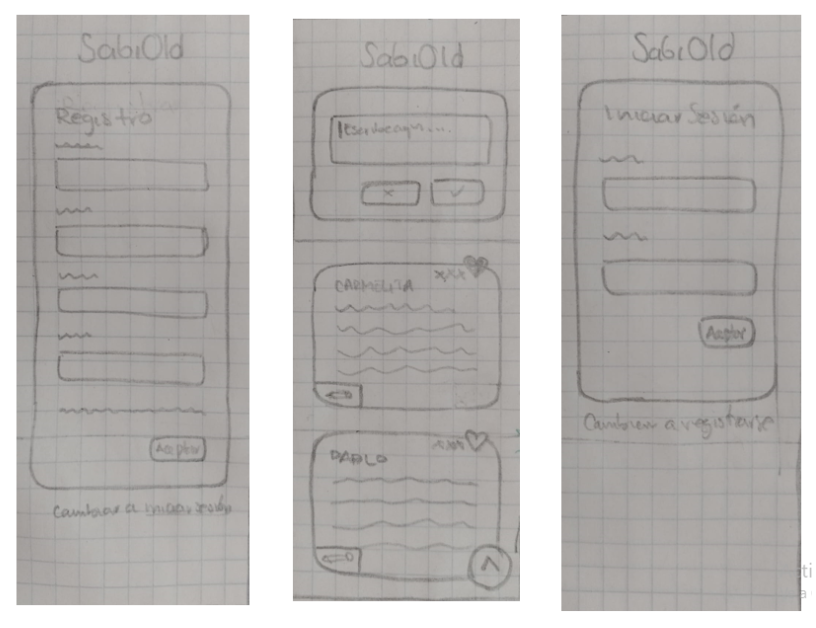 SabiOld
Registro
Aceptar
Cambiar a iniciar sesión
SabiOld
Escribe aquí...
x
CARMELITA
xxx
PABLO
xxx
SabiOld
Iniciar Sesión
Aceptar
Cambiar a registrarse